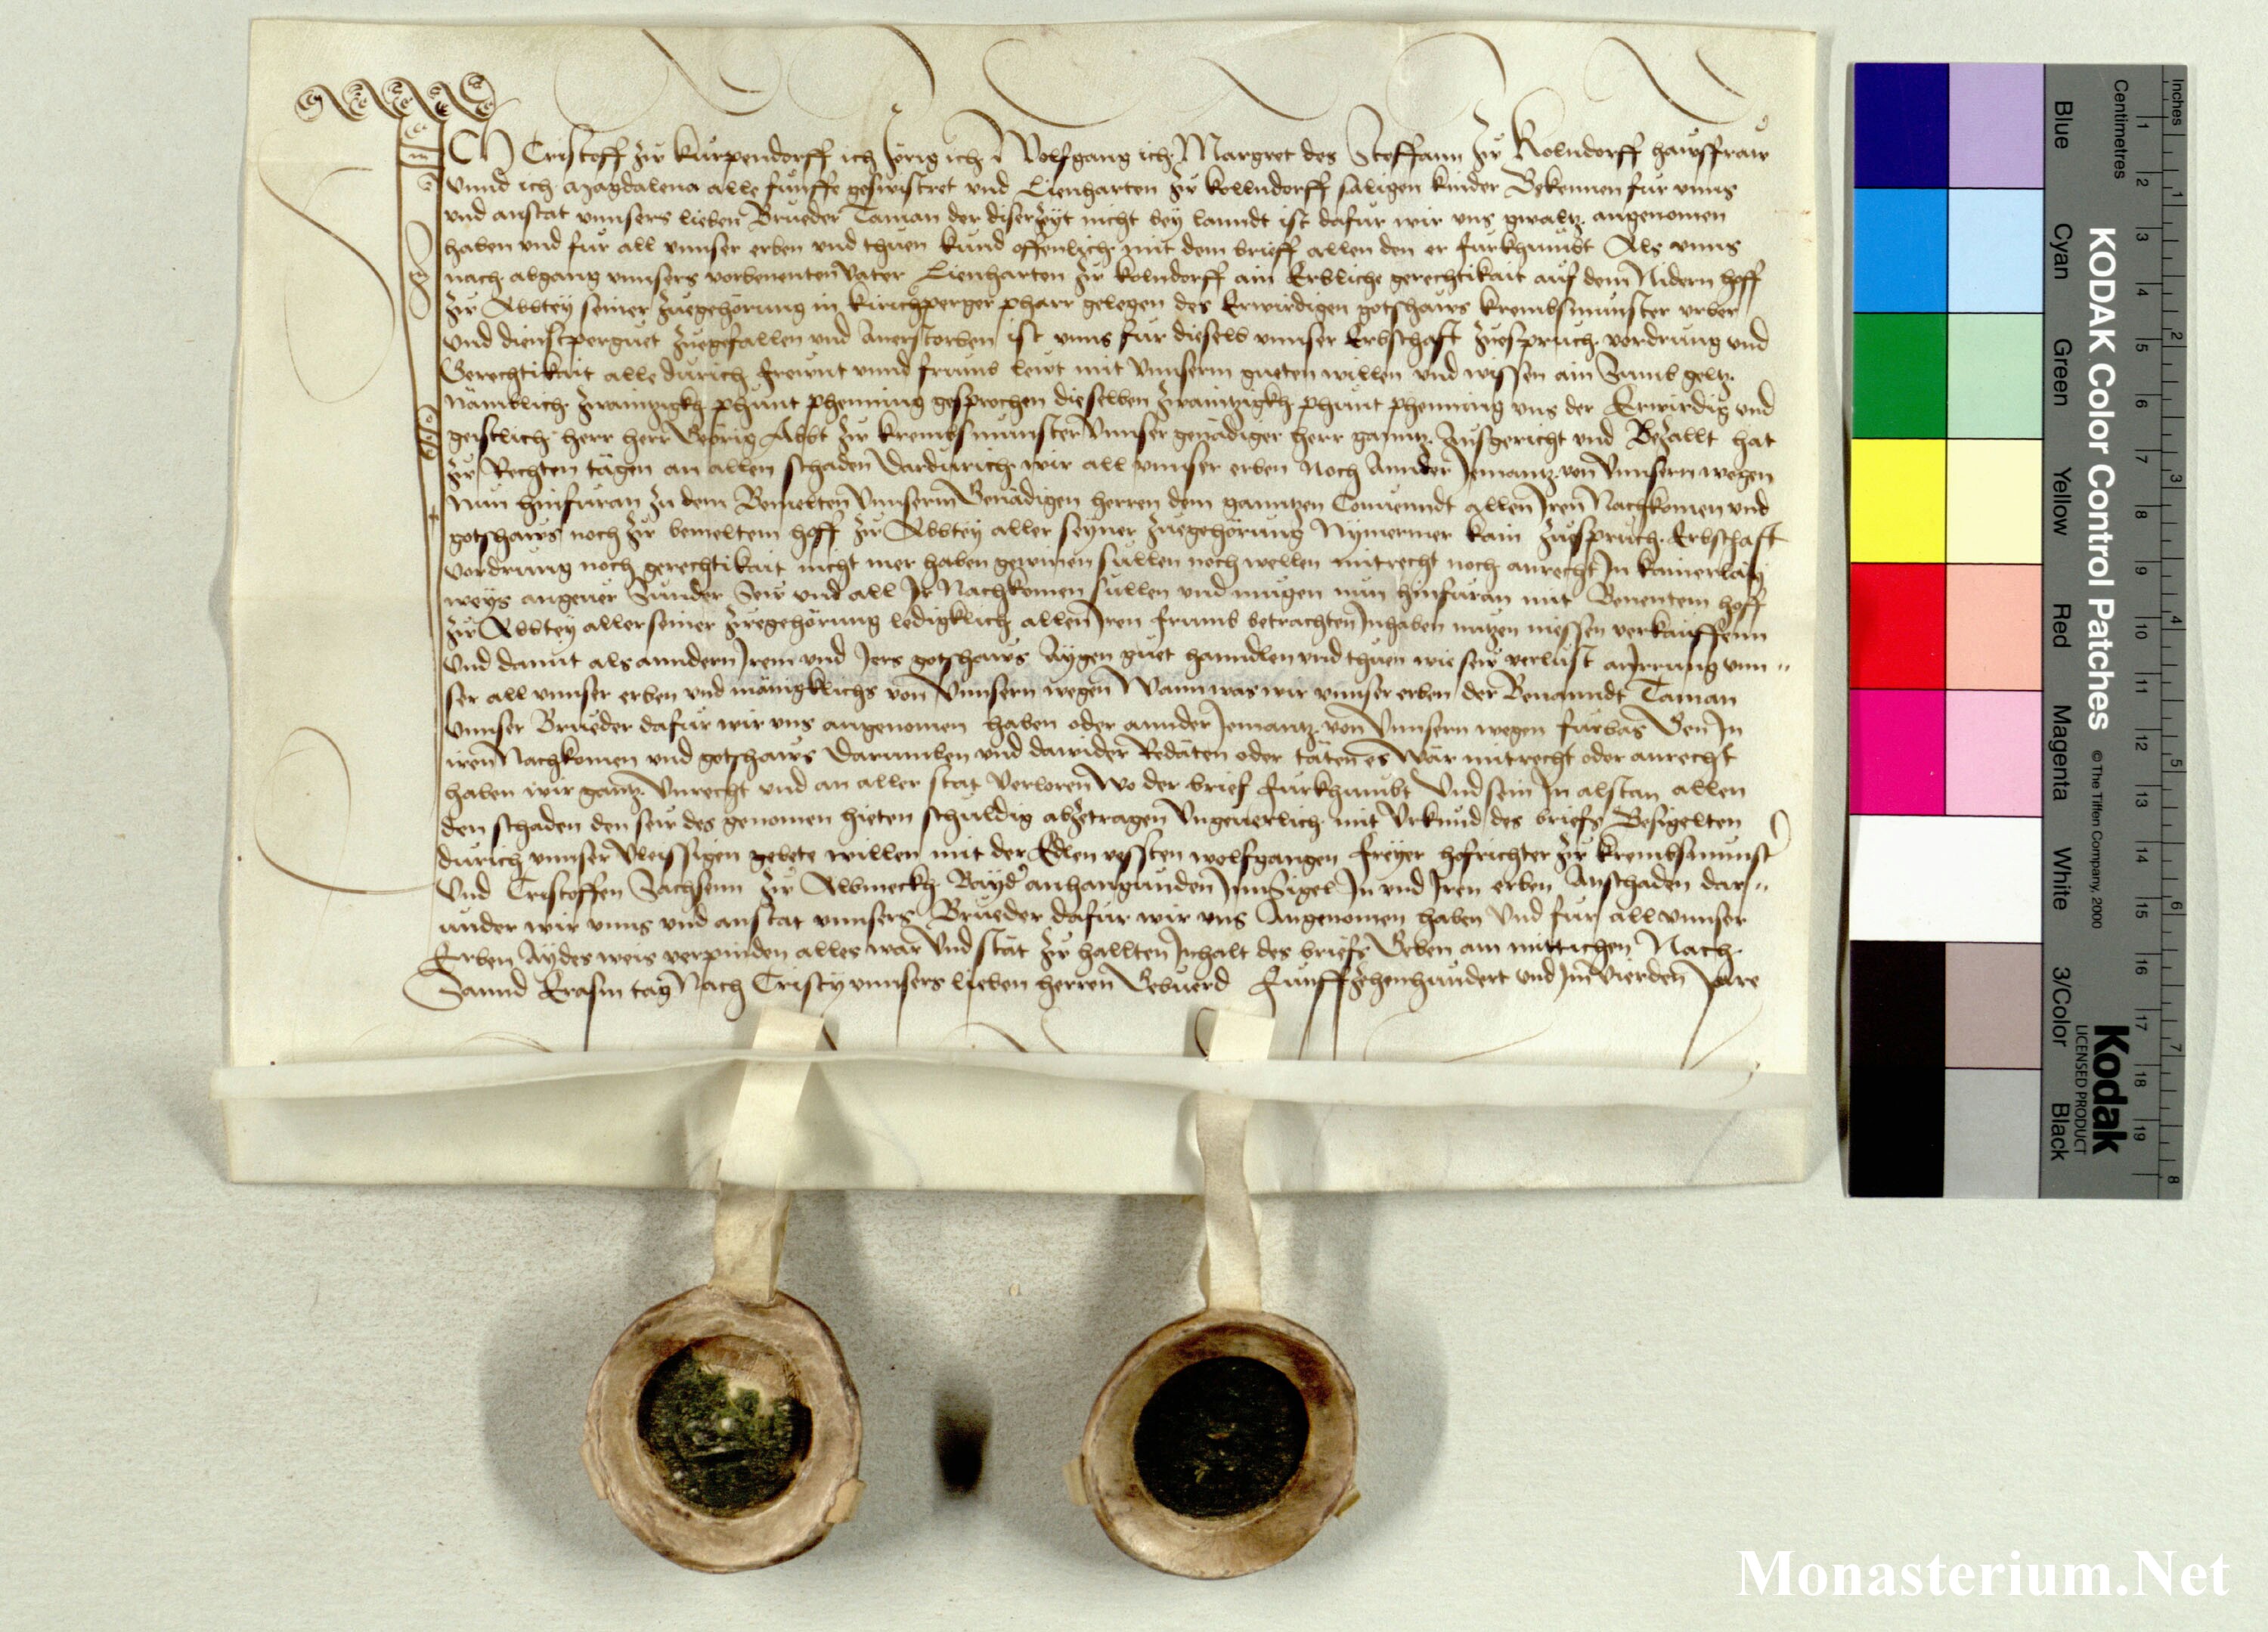 ICH Cristoff zw kurpendorff ich Jörig ich Wolfgang ich Margret des Steffann zw Kolndorff hawsffraw
vnnd ich Magdalena alle funffe geswistret vnd Lienharten zw kollndorff saligen kinder Bekennen fur vnns
vnd anstat vnnsers lieben Brueder Taman der diser zeyt nicht bey lanndt ist dafur wir vns gwaltz angenomen
haben vnd fur all vnnser erben vnd thuen kund offenlich mit dem brieff allen den er furkhumbt Als vnns
nach abgang vnnsers vorbenenten Vater Lienharten zw kolndorff ain Erbliche gerechtikait auf dem Nidern hoff
zw Abbtey seiner zuegehörung in kirichperger pharr gelegen des Erwirdigen gotshaws krembsmunster vrber
vnd dienstperguet zuegefallen vnd Anerstorben ist vnns fur dieselb vnnser Erbschaft zuespruch vordrung vnd
Gerechtikait alle durich frewnt vnnd frumb lewt mit vnnserm gueten willen vnd wissen ain Sumb geltz
Namblich zwaintzigkh phunt phenning gesprochen dieselben zwaintzigkh phunt phenning vns der Erwirdig vnd
geistlich herr herr Geörig Abbt zw krembsmunster vnnser genädiger herr ganntz Ausgericht vnd Bezallt hat
zw Rechten tägen an allen schaden dardurich wir all vnnser erben Noch Annder Jemantz von vnnsern wegen
Nun hinfuran zu dem Bemelten vnnserm Genädigen herren dem ganntzen Conuenndt allen Iren Nachkomen vnd
gotshaws noch zw bemeltem hoff zw Abbtey aller seyner zuegehörung Nymermer kain zuespruch Erbschaft
vordrung noch gerechtikait nicht mer haben gewinen sullen noch wellen mitrecht noch anrecht In kainerlay
weys angeuer Sunder Sew vnd all Ir Nachkomen sullen vnd mugen nun hinfuran mit Benentem hoff
zw Abbtey aller seiner zuegehörung ledigklich allen Iren frumb betrachten Inhaben nutzen niessen verkauffenn
vnd damit als anndern Irem vnd Jers gotshaws Aygen guet hanndlen vnd thuen wie sew verlust an Irrung vnn
ser all vnnser erben vnd mänigklichs von vnnsern wegen Wann was wir vnnser erben der Benanndt Taman
vnnser Brueder dafur wir vns angenomen haben oder annder Jemantz von vnnsern wegen furbas Gen In
iren Nachkomen vnd gotshaws Darumben vnd dawider Redäten oder täten es Wär mitrecht oder anrecht
haben wir gantz Vnrecht vnd an aller stat Verloren Wo der brief furkhumbt Vnd sein In alstan allen
den schaden den sew des genomen hieten schuldig abzetragen Vngeuerlich mit Vrkund des briefs Besigelten
durich vnnser Vleissigen gebete willen mit der Edlen vessten wolfgangen freyer hofrichter zw krembsmunst
Vnd Cristoffen Sachsenn zw Albmeckh Bayd anhangunden Innsigel In vnd Iren erben Anschaden dar
vnder wir vnns vnd anstat vnnsers Brueder dafur wir vns Angenomen haben Vnd fur all vnnser
Erben Aydes weis verpinden alles war Vnd stät zw hallten Inhalt des briefs Geben am mittichen Nach
Sannd Erasm tag Nach Cristy vnnsers lieben herren Gebuerd Funffzehenhundert vnd Im Vierden Jare
Inches
Centimetres
KODAK Color Control Patches
© The Tiffen Company, 2000
Kodak
LICENSED PRODUCT
Blue
Cyan
Green
Yellow
Red
Magenta
White
3/Color
Black
1 2 3 4 5 6 7 8 9 10 11 12 13 14 15 16 17 18 19
1 2 3 4 5 6 7 8
Monasterium.Net